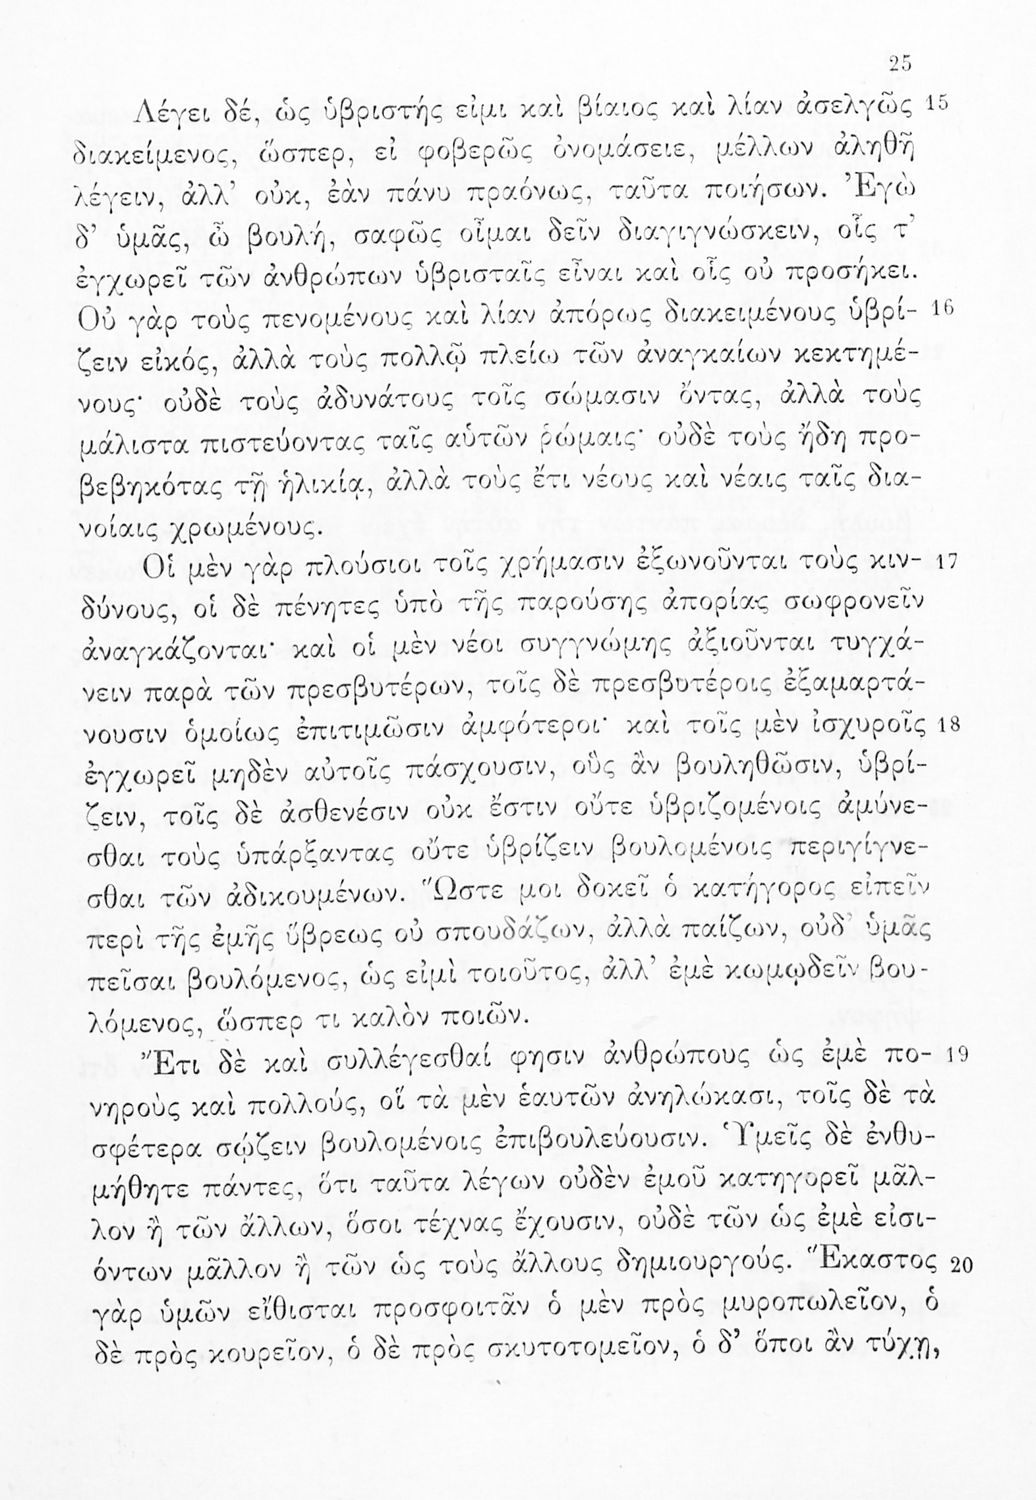 25
Λέγει δέ, ὡς ὑβριστής εἰμι καὶ βίαιος καὶ λίαν ἀσελγῶς 15
διακείμενος, ὥσπερ, εἰ φοβερῶς ὀνομάσειε, μέλλων ἀληθῆ
λέγειν, ἀλλ’ οὐκ, ἐὰν πάνυ πραόνως, ταῦτα ποιήσων. Ἐγὼ
δ’ ὑμᾶς, ὦ βουλή, σαφῶς οἶμαι δεῖν διαγιγνώσκειν, οἷς τ’
ἐγχωρεῖ τῶν ἀνθρώπων ὑβρισταῖς εἶναι καὶ οἷς οὐ προσήκει.
Οὐ γὰρ τοὺς πενομένους καὶ λίαν ἀπόρως διακειμένους ὑβρί- 16
ζειν εἰκός, ἀλλὰ τοὺς πολλῷ πλείω τῶν ἀναγκαίων κεκτημέ-
νους· οὐδὲ τοὺς ἀδυνάτους τοῖς σώμασιν ὄντας, ἀλλὰ τοὺς
μάλιστα πιστεύοντας ταῖς αὑτῶν ῥώμαις· οὐδὲ τοὺς ἤδη προ-
βεβηκότας τῇ ἡλικίᾳ, ἀλλὰ τοὺς ἔτι νέους καὶ νέαις ταῖς δια-
νοίαις χρωμένους.
Οἱ μὲν γὰρ πλούσιοι τοῖς χρήμασιν ἐξωνοῦνται τοὺς κιν- 17
δύνους, οἱ δὲ πένητες ὑπὸ τῆς παρούσης ἀπορίας σωφρονεῖν
ἀναγκάζονται· καὶ οἱ μὲν νέοι συγγνώμης ἀξιοῦνται τυγχά-
νειν παρὰ τῶν πρεσβυτέρων, τοῖς δὲ πρεσβυτέροις ἐξαμαρτά-
νουσιν ὁμοίως ἐπιτιμῶσιν ἀμφότεροι· καὶ τοῖς μὲν ἰσχυροῖς 18
ἐγχωρεῖ μηδὲν αὐτοῖς πάσχουσιν, οὓς ἂν βουληθῶσιν, ὑβρί-
ζειν, τοῖς δὲ ἀσθενέσιν οὐκ ἔστιν οὔτε ὑβριζομένοις ἀμύνε-
σθαι τοὺς ὑπάρξαντας οὔτε ὑβρίζειν βουλομένοις περιγίγνε-
σθαι τῶν ἀδικουμένων. Ὥστε μοι δοκεῖ ὁ κατήγορος εἰπεῖν
περὶ τῆς ἐμῆς ὕβρεως οὐ σπουδάζων, ἀλλὰ παίζων, οὐδ’ ὑμᾶς
πεῖσαι βουλόμενος, ὡς εἰμὶ τοιοῦτος, ἀλλ’ ἐμὲ κωμῳδεῖν βου-
λόμενος, ὥσπερ τι καλὸν ποιῶν.
Ἔτι δὲ καὶ συλλέγεσθαί φησιν ἀνθρώπους ὡς ἐμὲ πο- 19
νηροὺς καὶ πολλούς, οἳ τὰ μὲν ἑαυτῶν ἀνηλώκασι, τοῖς δὲ τὰ
σφέτερα σῴζειν βουλομένοις ἐπιβουλεύουσιν. Ὑμεῖς δὲ ἐνθυ-
μήθητε πάντες, ὅτι ταῦτα λέγων οὐδὲν ἐμοῦ κατηγορεῖ μᾶλ-
λον ἢ τῶν ἄλλων, ὅσοι τέχνας ἔχουσιν, οὐδὲ τῶν ὡς ἐμὲ εἰσι-
όντων μᾶλλον ἢ τῶν ὡς τοὺς ἄλλους δημιουργούς. Ἕκαστος 20
γὰρ ὑμῶν εἴθισται προσφοιτᾶν ὁ μὲν πρὸς μυροπωλεῖον, ὁ
δὲ πρὸς κουρεῖον, ὁ δὲ πρὸς σκυτοτομεῖον, ὁ δ’ ὅποι ἂν τύχῃ,